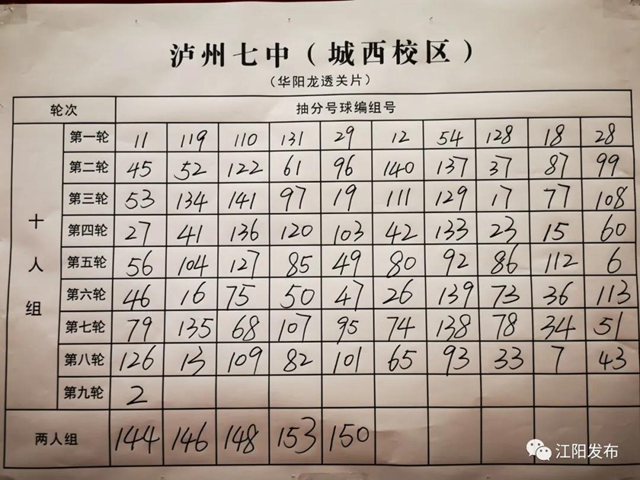 泸州七中（城西校区）
（华阳龙透关片）
轮次 抽分号球编组号
十人组
第一轮 11 119 110 131 29 12 54 128 18 28
第二轮 45 52 122 61 96 140 137 37 87 99
第三轮 53 134 141 97 19 111 129 17 77 108
第四轮 27 41 136 120 103 42 133 23 15 60
第五轮 56 104 127 85 49 80 92 86 112 6
第六轮 46 16 75 50 47 26 139 73 36 113
第七轮 79 135 68 107 95 74 138 78 34 51
第八轮 126 13 109 82 101 65 93 33 7 43
第九轮 2
两人组 144 146 148 153 150
江阳发布